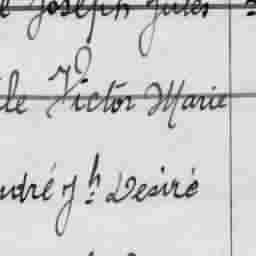 Joseph Jules
le Victor Marie
ndré Jh Desiré